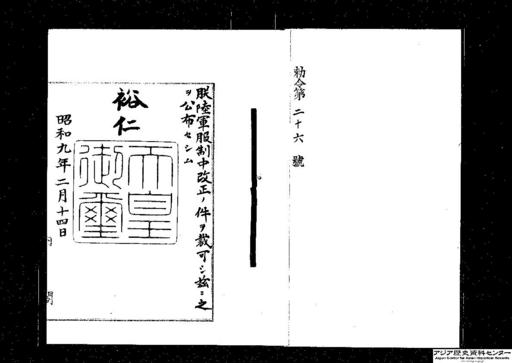 勅令第二十六號
朕陸軍服制中改正ノ件ヲ裁可シ玆ニ之
ヲ公布セシム
裕仁
天皇
御璽
昭和九年二月十四日
内閣
アジア歴史資料センター
Japan Center for Asian Historical Records